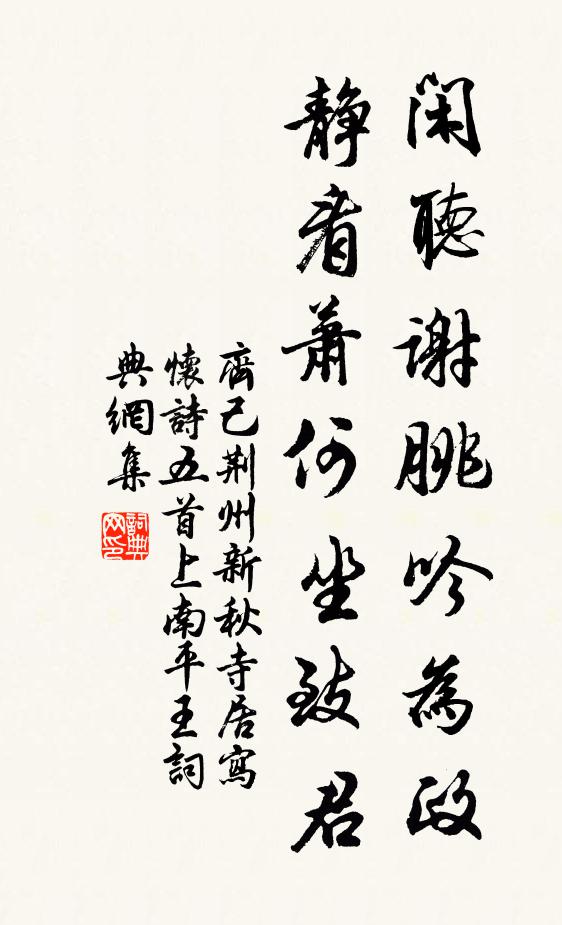 閑聽謝朓吟為政
静看蕭何坐致君
齊己荆州新秋寺居寫
懷詩五首上南平王詞
典網集
詞典
网印